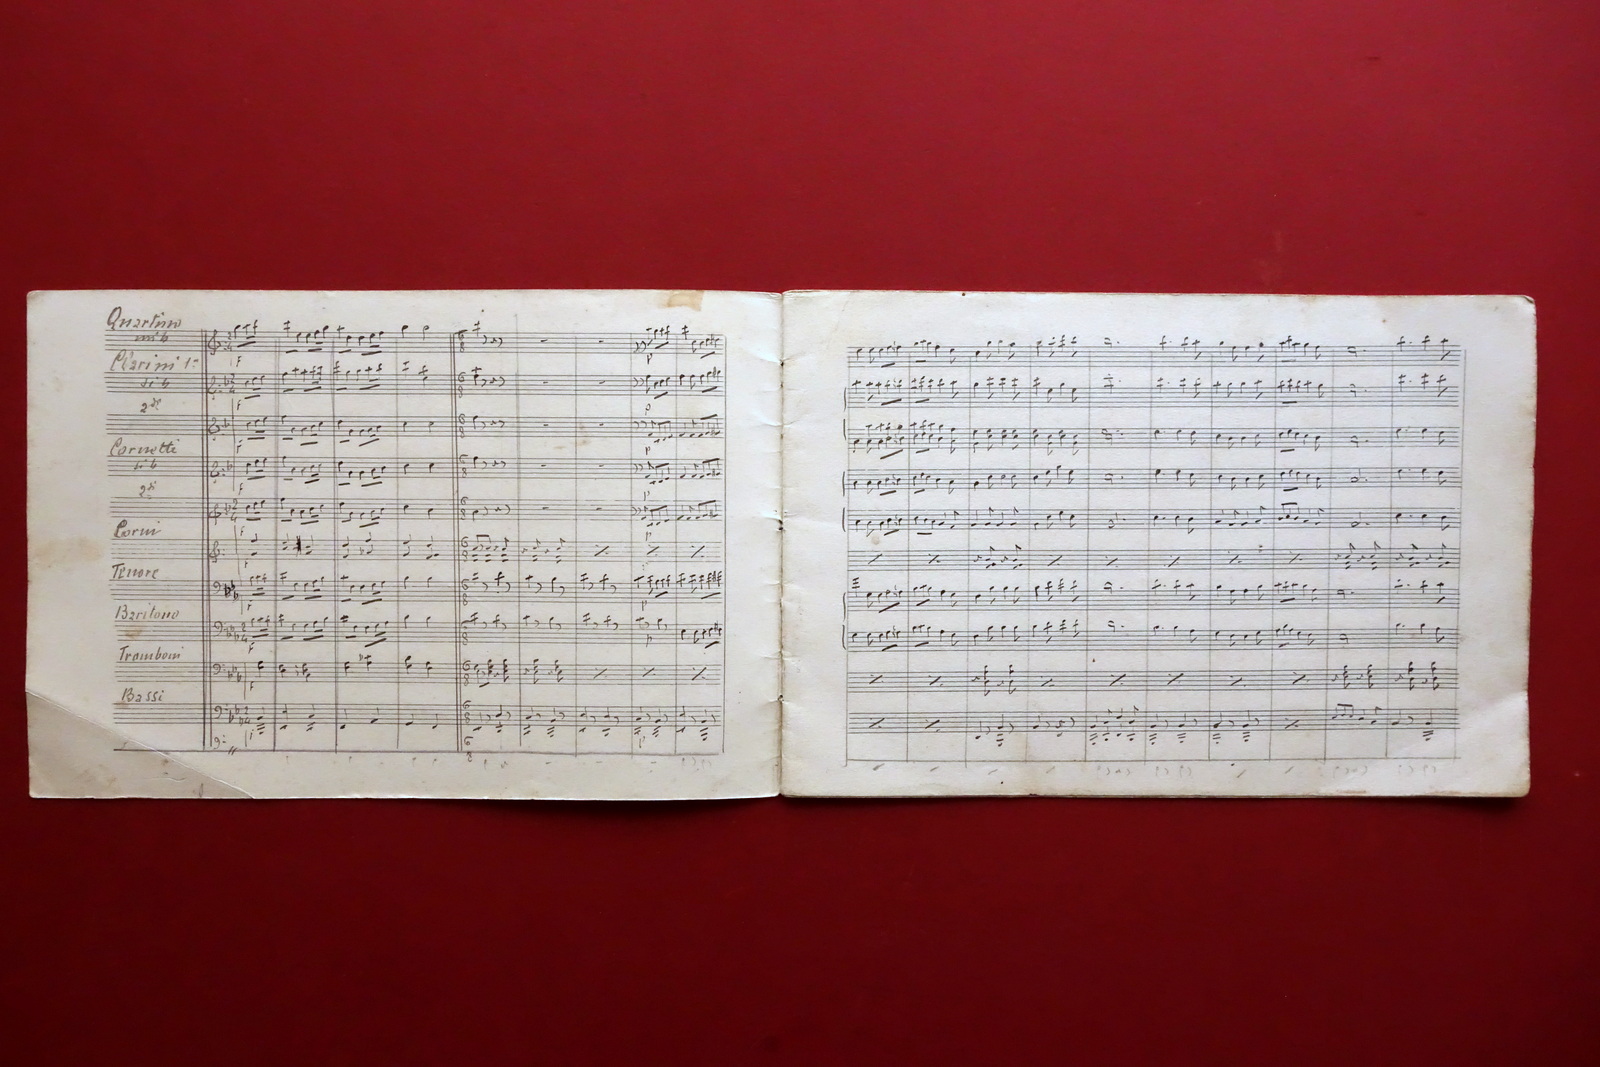 Quartino
mi b
Clarini 1º
si b
2di
Cornetti
si b
2di
Corni
Tenore
Baritono
Tromboni
Bassi